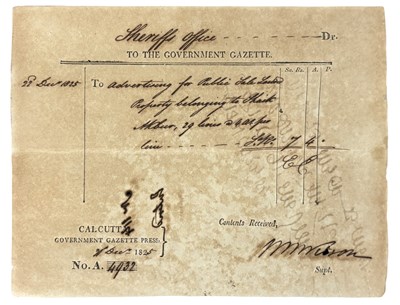 Sheriffs Office Dr.
TO THE GOVERNMENT GAZETTE.
Sa. Rs. A. P.
Decr 1825 To advertising for Public Sale Landed
Property belonging to Shaik
29 lines per
line 7 4
CALCUTTA
GOVERNMENT GAZETTE PRESS:
Decr. 1825
No. A. 4932
Contents Received,
Supt.